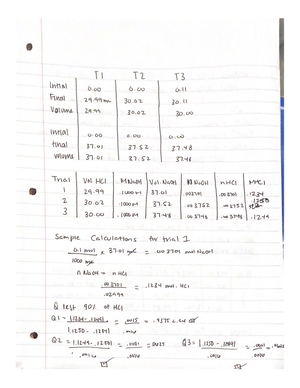 T1 T2 T3
Initial 0.00 0.00 0.11
Final 29.99 30.02 30.11
Volume 29.99 30.02 30.00
Initial 0.00 0.00 0.00
final 37.01 37.52 37.48
volume 37.01 37.52 37.48
Trial Vol HCl M NaOH Vol. NaOH n NaOH n HCl M HCl
1 29.99 .1000 M 37.01 .003701 .003701 .1234
2 30.02 .1000 M 37.52 .003752 .003752 .1250
3 30.00 .1000 M 37.48 .003748 .003748 .1249
Sample Calculations for trial 1
0.1 mol × 37.01 = .003701 mol NaOH
1000
n NaOH = n HCl
.003701 = .1234 mol. HCl
.02999
Q test 90% of HCl
Q1 = .1234 - .1249 = .0015 = .9375
.1250 - .1234 .0016
Q2 = .1249 - .1250 = .0001
.0016
Q3 =
.0016